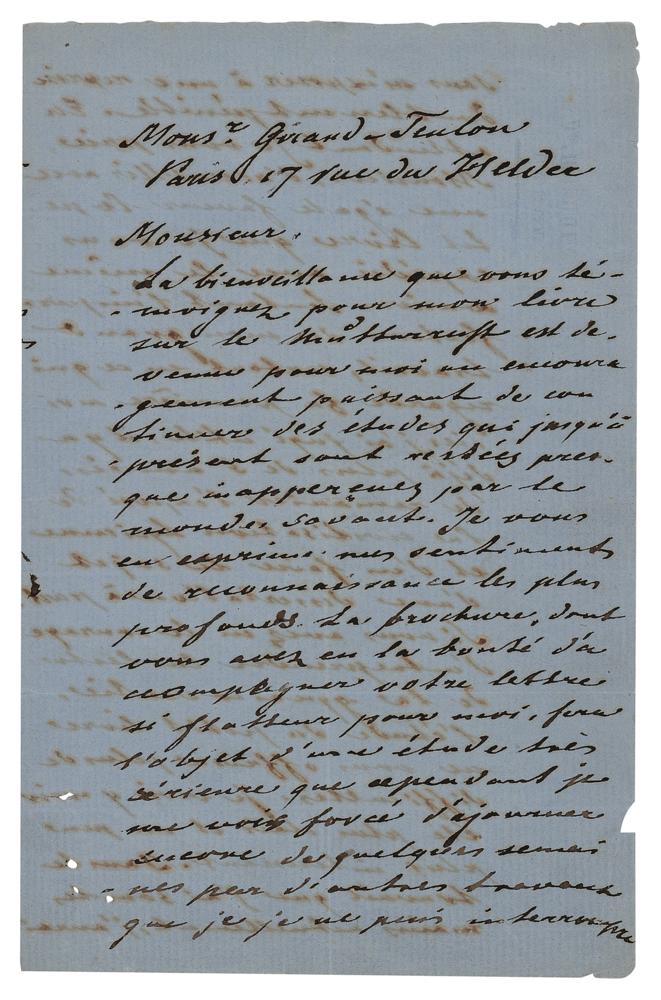 Monsr Giraud-Teulon
Paris. 17 rue du Helder
Monsieur.
La bienveillance que vous té-
-moignez pour mon livre
sur le Mutterrecht est de-
venue pour moi un encoura
-gement puissant de con
tinuer des études qui jusqu'à
-présent sont restées pres-
que inapperçues par le
monde savant. Je vous
en exprime mes sentiments
de reconnaissance les plus
profonds. La brochure, dont
vous avez eu la bonté d'a
ccompagner votre lettre
si flatteur pour moi, fera
l'objet d'une étude très
sérieuse que cependant je
me vois forcé d'ajourner
encore de quelques semai
-nes par d'autres travaux
que je je ne puis interrompre